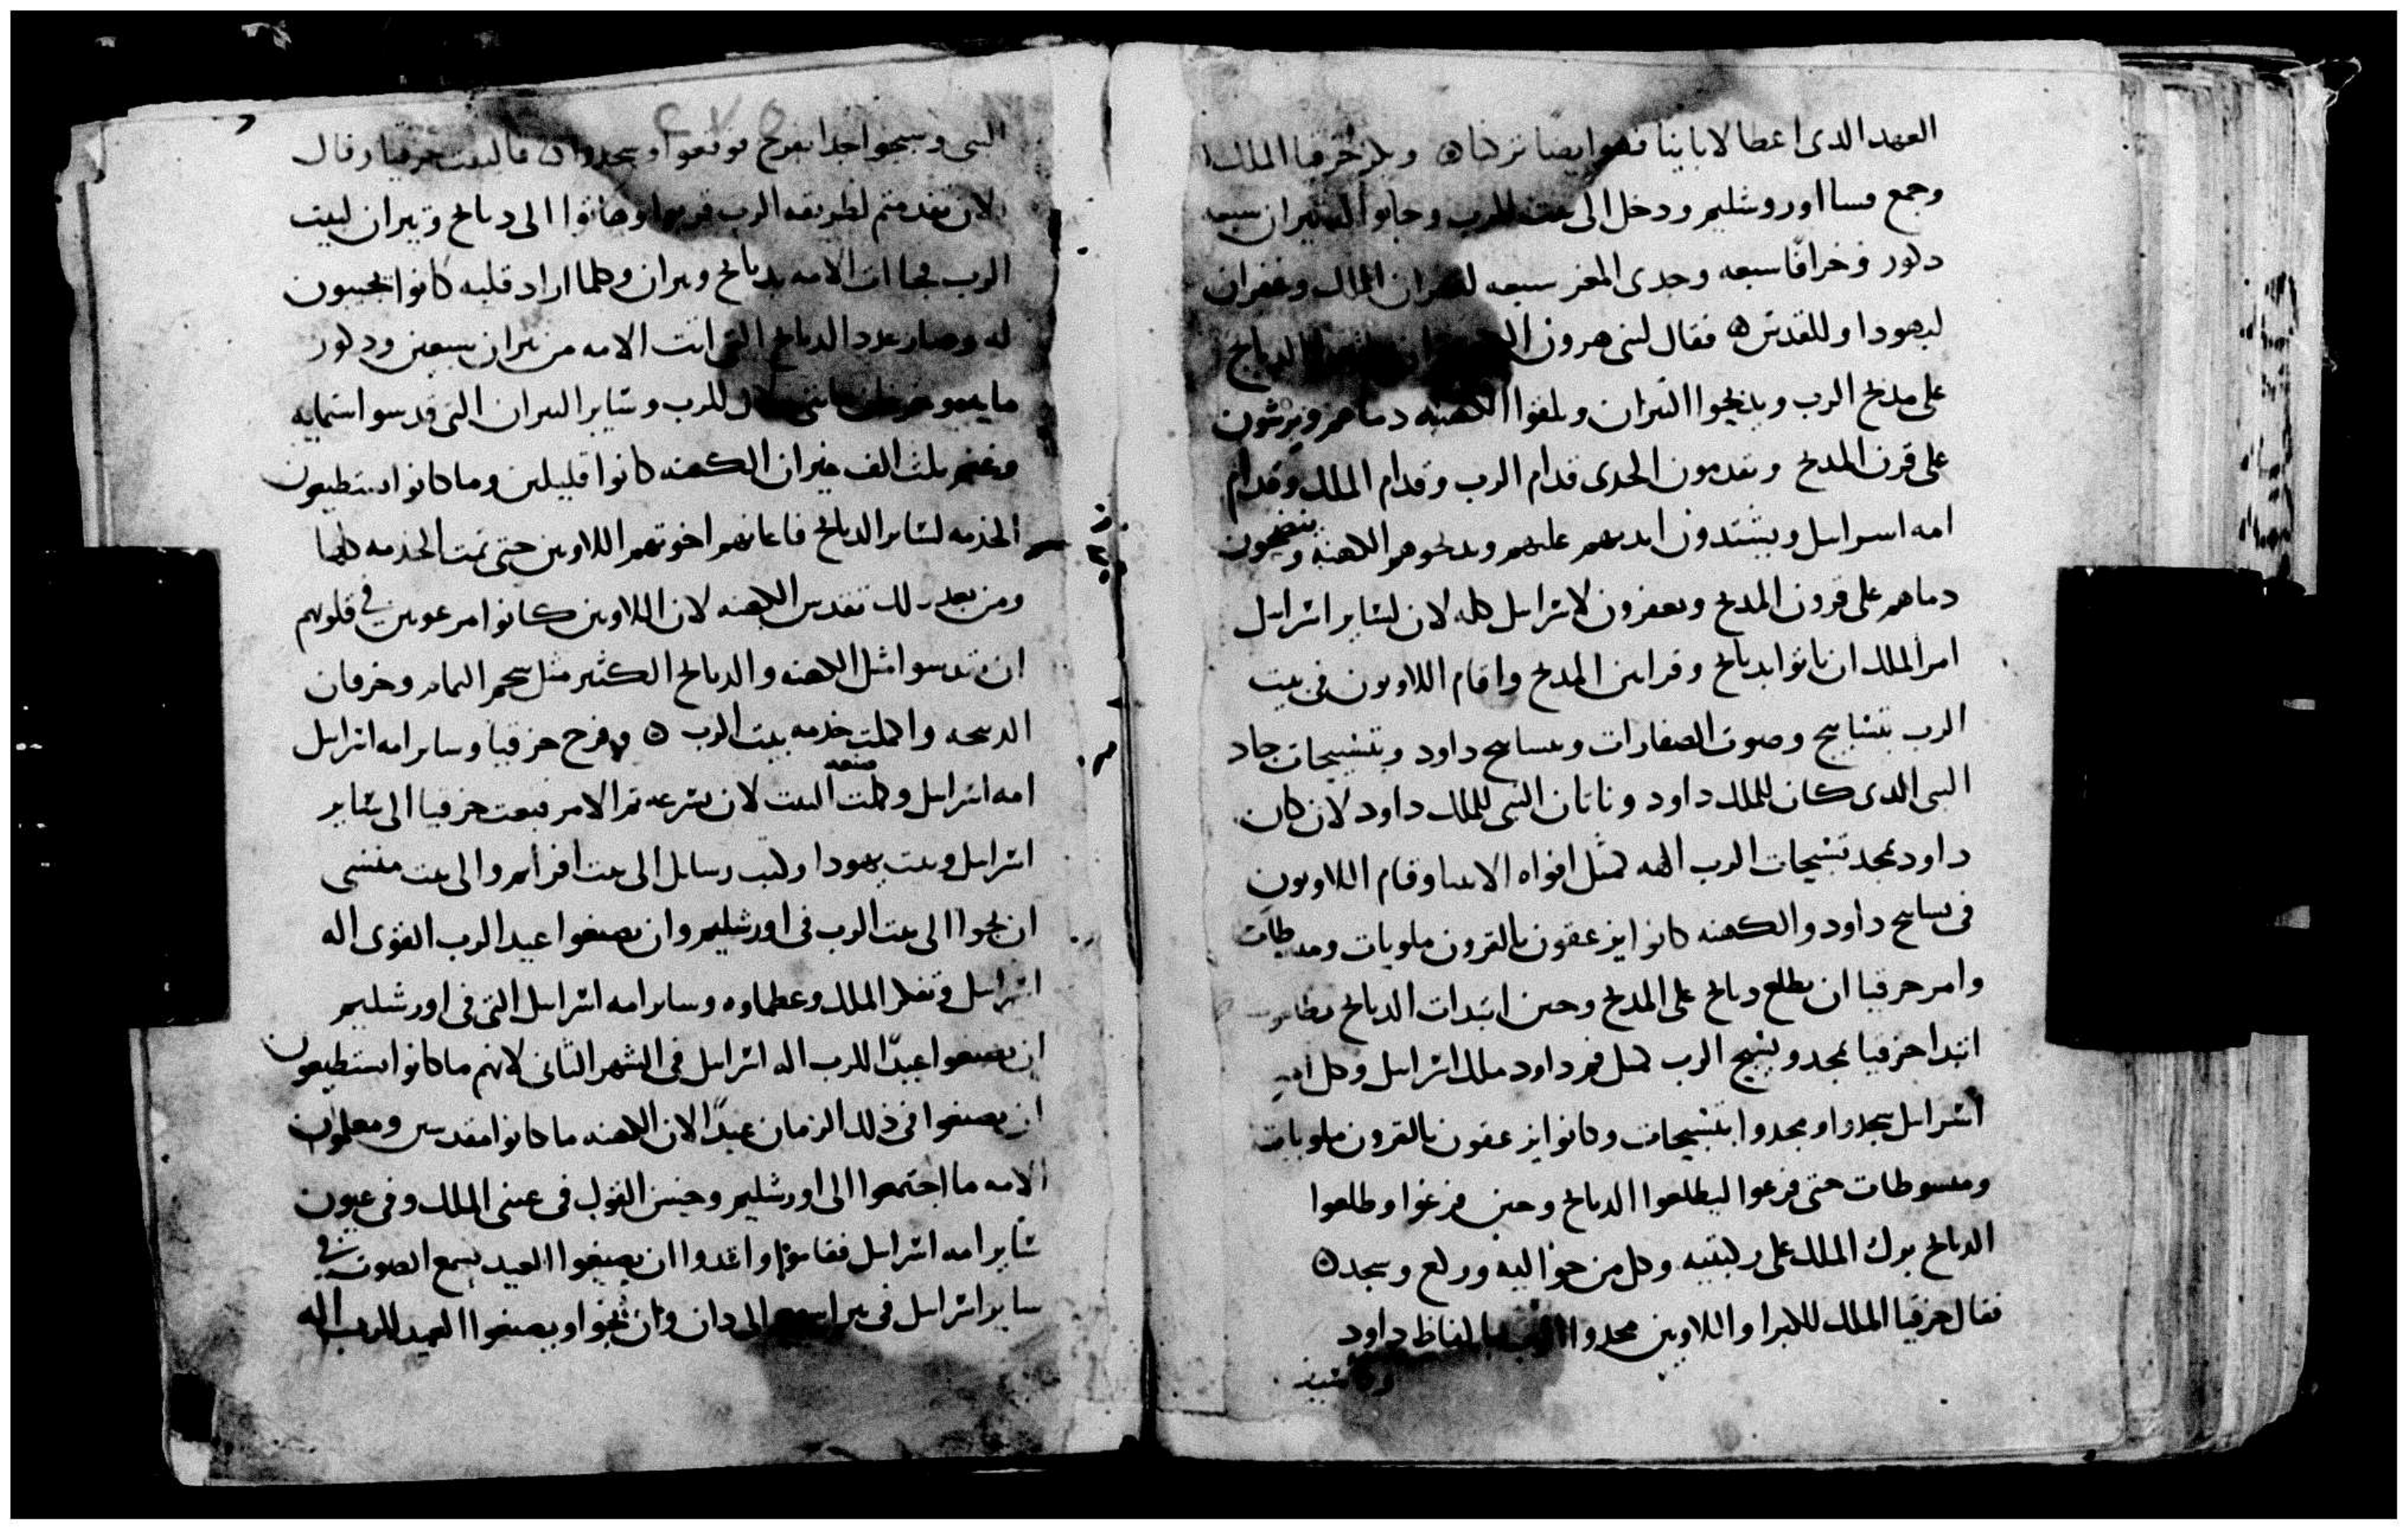 العهد الدى اعطا لابابنا فهو ايضا تركناه وبكر حزقيا الملك
وجمع روسا اوروشليم ودخل الى بيت الرب وجابوا التيران سبعه
دكور وخرافا سبعه وجدى المعز سبعه لغفران الملك وغفران
ليهودا وللقدس فقال لبنى هرون الدبايح
على مدبح الرب ويدبحوا التيران وبلغوا الكهنه دماهم ويرشون
على قرن المدبح ويقدمون الجدى قدام الرب وقدام الملك وقدام
امه اسراىىل ويسندون ايديهم عليهم ويدبحوهم الكهنه وينضحون
دماهم على قرون المدبح ويغفرون لاسراىيل كله لان لساير اسراييل
امر الملك ان ياتوا بدبايح وقرابين المدبح واقام اللاويون فى بيت
الرب بتسابيح وصوت الصفارات وبتسابيح داود وبتسبيحات جاد
النبى الدى كان للملك داود وناتان النبى للملك داود لان كان
داود يمجد تسبيحات الرب الهه كمثل افواه الانبيا وقام اللاويون
فى تسابيح داود والكهنه كانوا يزعقون بالقرون ملويات ومبسطات
وامر حزقيا ان يطلع دبايح على المدبح وحين ابتدات الدبايح
ابتدا حزقيا يمجد ويسبح الرب كمثل فم داود ملك اسراييل وكل امه
اسراييل سجدوا ومجدوا بتسبيحات وكانوا يزعقون بالقرون ملويات
ومبسوطات حتى فرغوا ليطلعوا الدبايح وحين فرغوا وطلعوا
الدبايح برك الملك على ركبتيه وكل من حواليه وركع وسجد
فقال حزقيا الملك للكبرا واللاويين مجدوا الرب بالفاظ داود
النبى وسبحوا جدا بفرح فوقعوا وسجدوا فالتفت حزقيا وقال
الان تقدمتم لطريقه الرب قربوا وهاتوا الى دبايح وتيران لبيت
الرب فجاات الامه بدبايح وتيران وكلما اراد قلبه كانوا يجيبون
له وصار عدد الدبايح التى اتت الامه من تيران سبعين ودكور
مايه وخرفان للرب وساير التيران التى قدسوا ستمايه
وغنم تلت الف غير ان الكهنه كانوا قليلين وما كانوا يستطيعون
الخدمه لساير الدبايح فاعانهم اخوتهم اللاويين حتى تمت الخدمه كلها
ومن بعد دلك تقدس الكهنه لان اللاويين كانوا مرعوبين فى قلوبهم
ان يقدسوا مثل الكهنه والدبايح الكثير مثل شحم التمام وخرفان
الدبيحه واكملت خدمه بيت الرب وفرح حزقيا وساير امه اسراييل
امه اسراييل وكملت صنعه البيت لان بسرعه تم الامر فبعت حزقيا الى ساير
اسراييل وبيت يهودا وكتب رسايل الى بيت افرايم والى بيت منسى
ان يجوا الى بيت الرب فى اورشليم وان يصنعوا عيد الرب القوى اله
اسراييل وتفكر الملك وعظماوه وساير امه اسراييل التى فى اورشليم
ان يصنعوا عيدا للرب اله اسراييل فى الشهر الثانى لانهم ما كانوا يستطيعون
ان يصنعوا فى ذلك الزمان عيدا لان الكهنه ما كانوا مقدسين
الامه ما اجتمعوا الى اورشليم وحسن القول فى عينى الملك وفى عيون
ساير امه اسراييل فقاموا ان يصنعوا العيد يسمع الصوت فى
ساير اسراييل الى دان وان يجوا ويصنعوا العيد للرب اله